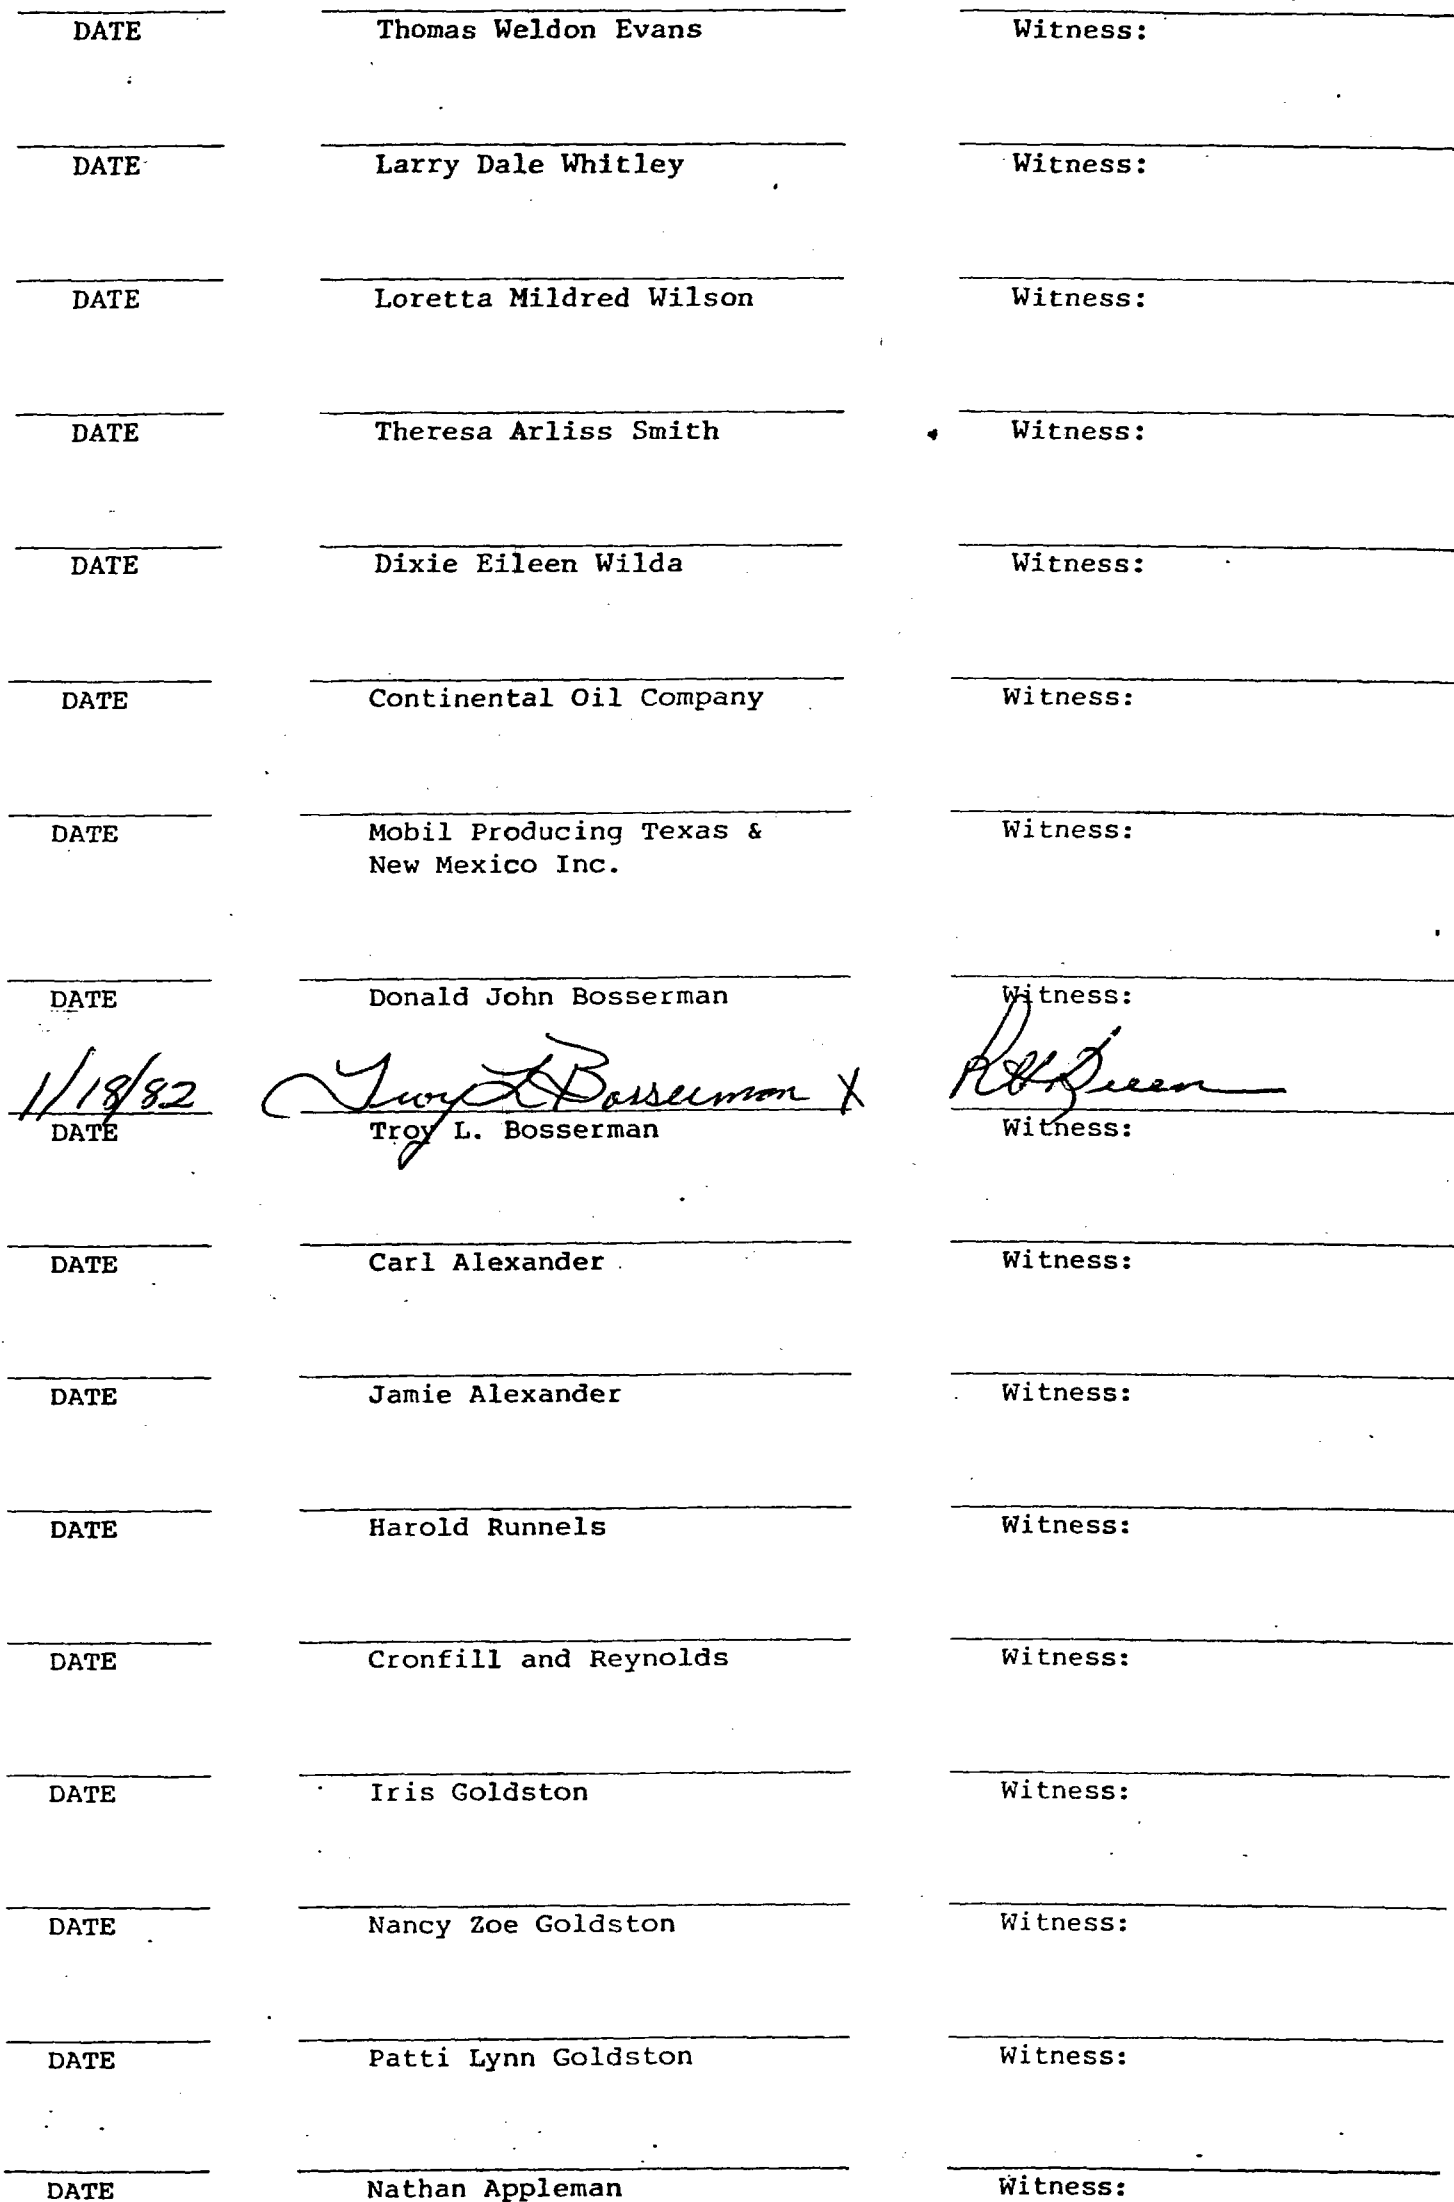 DATE Thomas Weldon Evans Witness:
DATE Larry Dale Whitley Witness:
DATE Loretta Mildred Wilson Witness:
DATE Theresa Arliss Smith Witness:
DATE Dixie Eileen Wilda Witness:
DATE Continental Oil Company Witness:
DATE Mobil Producing Texas & Witness:
New Mexico Inc.
DATE Donald John Bosserman Witness:
1/18/82 Troy L Bosserman X
DATE Troy L. Bosserman Witness:
DATE Carl Alexander Witness:
DATE Jamie Alexander Witness:
DATE Harold Runnels Witness:
DATE Cronfill and Reynolds Witness:
DATE Iris Goldston Witness:
DATE Nancy Zoe Goldston Witness:
DATE Patti Lynn Goldston Witness:
DATE Nathan Appleman Witness: